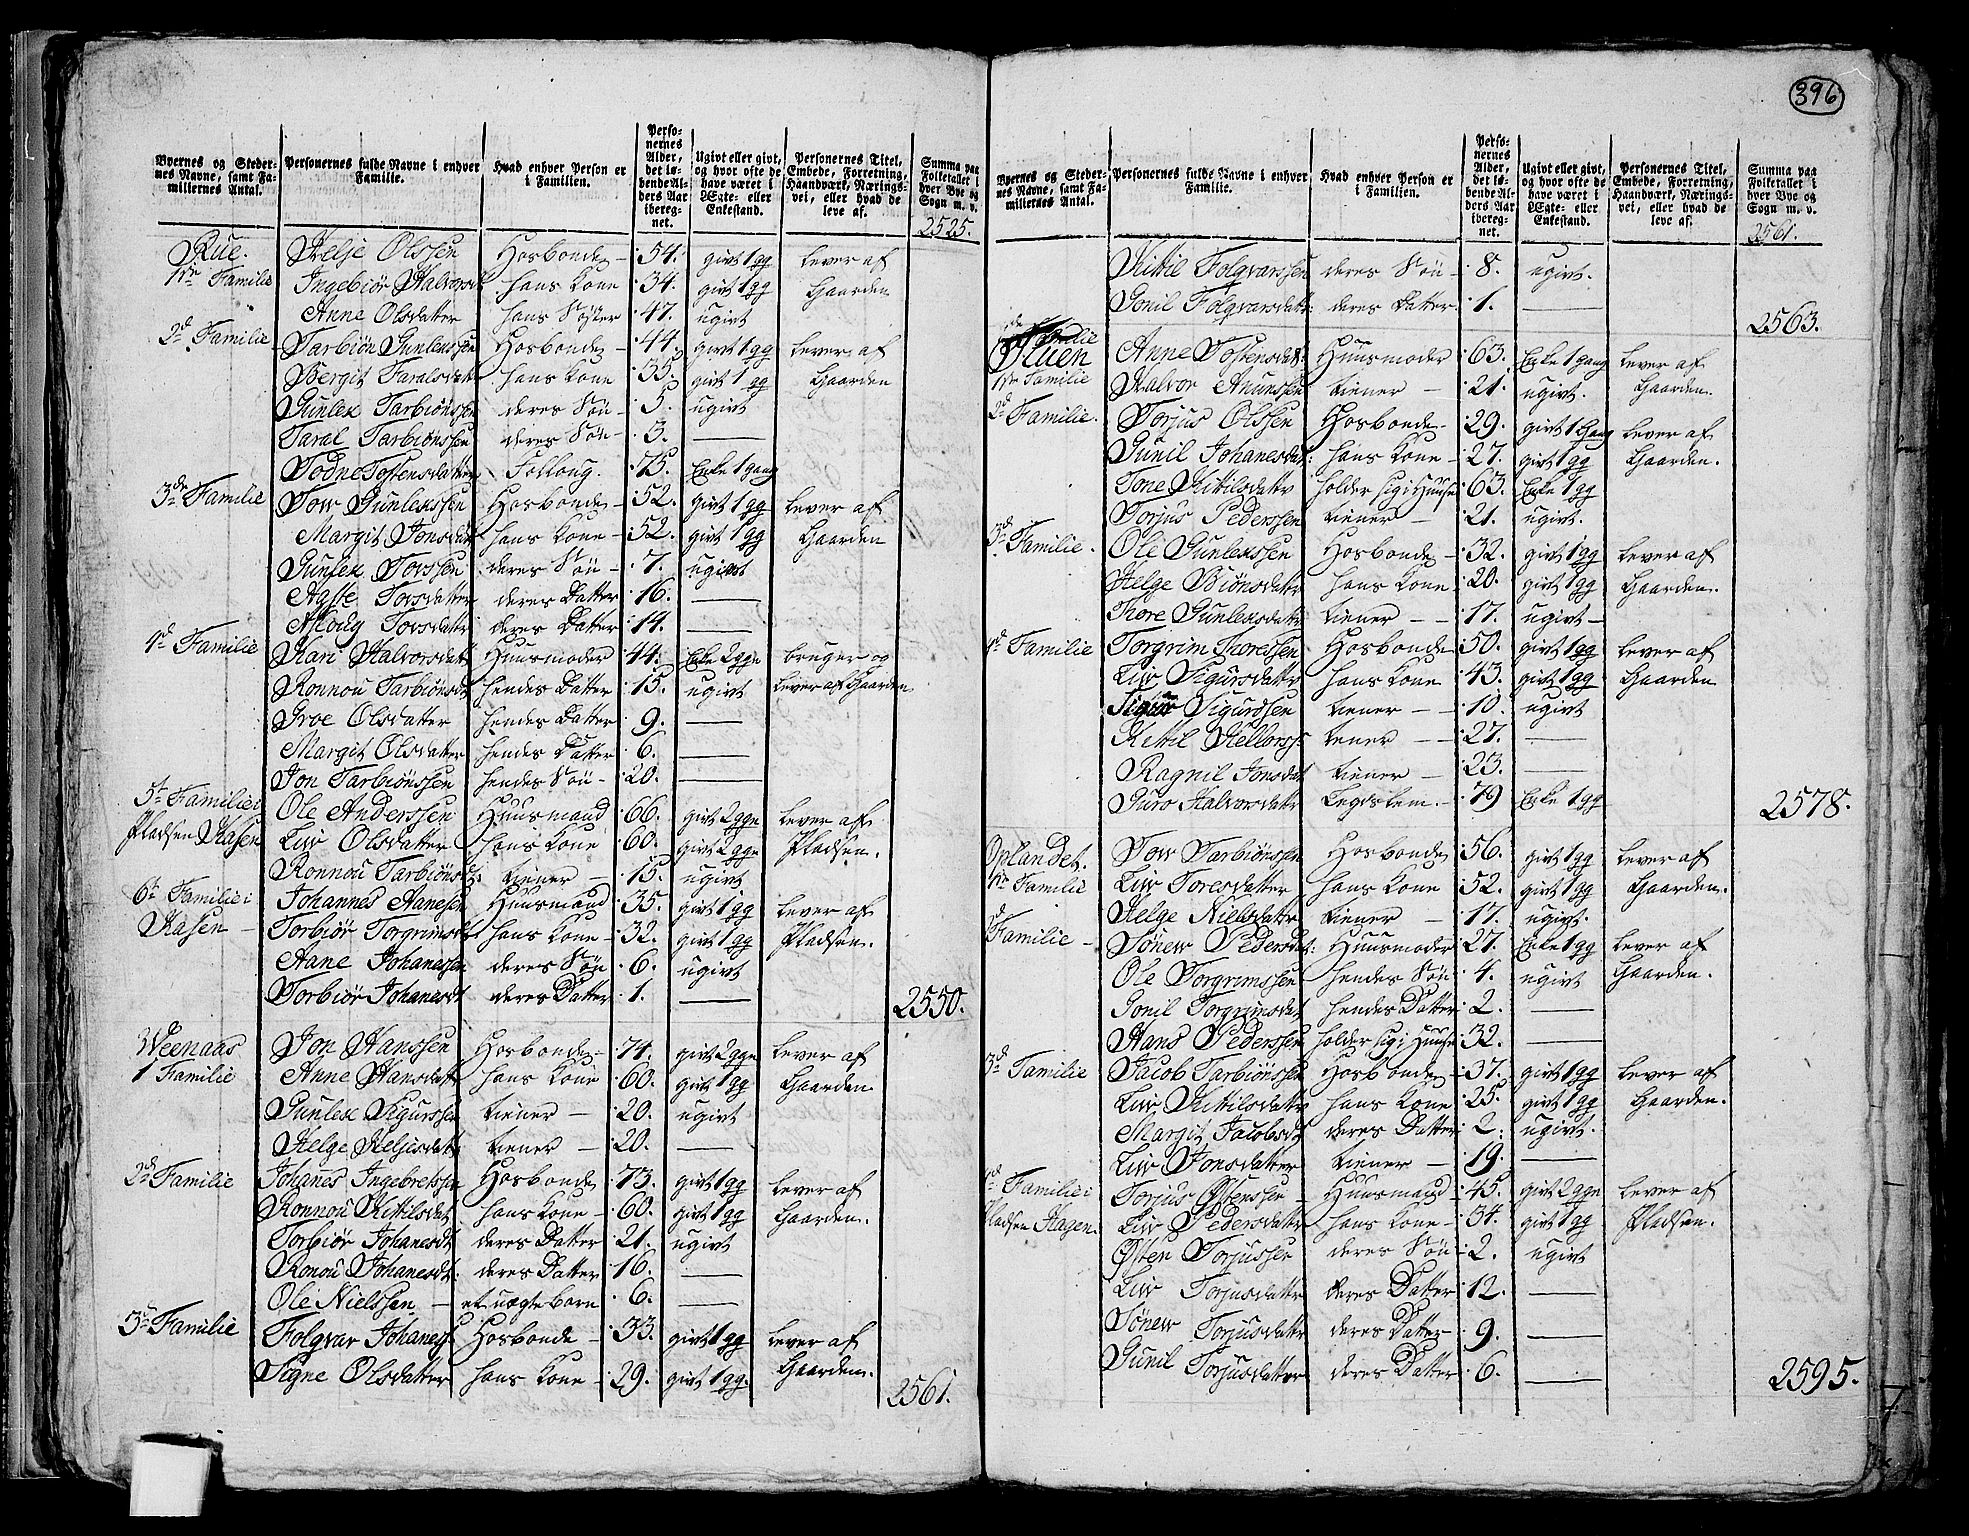 396
Byernes og Stedernes Navne, samt Familiernes Antal. Personernes fulde Navne i enhver Familie. Hvad enhver Person er i Familien. Personernes Alder, det løbende Alders Aar iberegnet. Ugivt eller givt, og hvor ofte de have været i Ægte- eller Enkestand. Personernes Titel, Embede, Forretning, Haandværk, Næringsvei, eller hvad de leve af. Summa paa Folketallet i hver Bye og Sogn m. v.
2525.
Rue. Helje Olssen Hosbonde 54. givt 1 gg lever af
1ste Familie Ingebiør Halvorsd hans Kone 34. givt 1 gg Gaarden
Anne Olsdatter hans Søster 47. ugivt
2d Familie Tarbiøn Gunlekssen Hosbonde 44. givt 1 gg lever af
Bergit Taralsdatt hans Kone 35. givt 1 gg Gaarden
Gunlek Tarbiønssen deres Søn 5. ugivt
Taral Tarbiønssen deres Søn 3. —
Todne Tostensdatter Folloug. 75. Enke 1 gang
3de Familie Tow Gunlekssen Hosbonde 52. givt 1 gg lever af
Margit Jonsdatt hans Kone 52. givt 1 gg Gaarden
Gunlek Tovssen deres Søn 7. ugivt
Aasse Tovsdatter deres Datter 16. —
Aloug Tovsdattr deres Datter 14. —
4d Familie Kari Halvorsdatt Huusmoder 44. Enke 2gge bruger og
Ronnou Tarbiønsdt hendes Datter 15. ugivt lever af Gaarden
Groe Olsdatter hendes Datter 9. —
Margit Olsdatter hendes Datter 6. —
Jon Tarbiønssen hendes Søn 20. —
5t Familie i Ole Anderssen Huusmand 66. givt 2gge lever af
Pladsen Kasen Liv Olsdatter hans Kone 60. givt 2gge Pladsen.
Ronnou Tarbiønsdt: tiener 15. ugivt
6t Familie i Johannes Aanesen Huusmand 35. givt 1 gg lever af
Kasen Torbiør Torgrimsdt hans Kone 32. givt 1 gg Pladsen.
Aane Johanessen deres Søn 6. ugivt
Torbiør Johanesdt deres Datter 1. — 2550.
Weenaas Jon Hanssen Hosbonde 74. givt 2gge lever af
1 Familie Anne Hansdatt hans Kone 60. givt 1 gg Gaarden
Gunlek Sigurssen tiener 20. ugivt
Helge Heljesdatt tiener 20. —
2d Familie Johanes Ingebretssen Hosbonde 73. givt 1 gg lever af
Ronnou Kittilsdat hans Kone 60. givt 1 gg Gaarden.
Torbiør Johanesdt deres Datter 21. ugivt
Ronou Johanesdt: deres Datter 16. —
Ole Nielssen et uægte barn 6. —
3d Familie Folgvar Johaness Hosbonde 33. givt 1 gg lever af
Signe Olsdatter hans Kone 29. givt 1 gg. Gaarden.
2561.
Byernes og Stedernes Navne, samt Familiernes Antal. Personernes fulde Navne i enhver Familie. Hvad enhver Person er i Familien. Personernes Alder, det løbende Alders Aar iberegnet. Ugivt eller givt, og hvor ofte de have været i Ægte- eller Enkestand. Personernes Titel, Embede, Forretning, Haandværk, Næringsvei, eller hvad de leve af. Summa paa Folketallet i hver Bye og Sogn m. v.
2561.
Kittil Folgvarssen deres Søn 8. ugivt.
Gonil Folgvarsdatt: deres Datter 1. —
2563.
Anne Tostensdat: Huusmoder 63. Enke 1 gang lever af
1ste Familie Halvor Anunssen tiener 21. ugivt. Gaarden.
2d Familie. Torjus Olssen Hosbonde 29. givt 1 Gang lever af
Gunil Johanesdat: hans Kone 27. givt 1 gg Gaarden.
Tone Kittilsdattr holder sig i Huuse 63. Enke 1 gg
Torjus Pederssen tiener 21. ugivt.
3d Familie. Ole Gunlekssen Hosbonde 32. givt 1 gg lever af
Helge Biønsdattr hans Kone 20. givt 1 gg Gaarden.
Thore Gunleksdattr tiener 17. ugivt
4d Familie Torgrim Thoressen Hosbonde 50. givt 1 gg lever af
Liv Sigursdattr hans Kone 43. givt 1 gg Gaarden
Sigurdssen tiener 10. ugivt
Kittil Kellorss: tiener 27. —
Ragnil Jonsdat tiener 23. —
Guro Halvorsdattr Legdslem. 79 Enke 1 gg
2578.
Oplandet. Tow Tarbiønssen Hosbonde 56. givt 1 gg lever af
1ste Familie Liv Toresdatter hans Kone 52. givt 1 gg Gaarden.
Helge Nielsdattr tiener 17. ugivt.
2d Familie Sønew Pedersdat: Huusmoder 27. Enke 1 gg lever af
Ole Torgrimssen hendes Søn 4. ugivt Gaarden.
Gonil Torgrimsdat hendes Datter 2. —
Hans Pederssen holder sig i Huuse 32. —
3d Familie Jacob Tarbiønssen Hosbonde 37. givt 1 gg lever af
Liv Kittilsdattr hans Kone 25. givt 1 gg Gaarden.
Margit Jacobsdt deres Datter 2. ugivt.
Liv Jonsdatter tiener 19. —
4d Familie i Torjus Østenssen Huusmand 45. givt 2gge lever af
Pladsen Hagen. Liv Pedersdattr hans Kone 34. givt 1 gg Pladsen.
Østen Torjussen deres Søn 2. ugivt
Liv Torjusdattr deres Datter 12. —
Sønew Torjusdattr deres Datter 9. —
Gunil Torjusdatter deres Datter 6. —
2595.